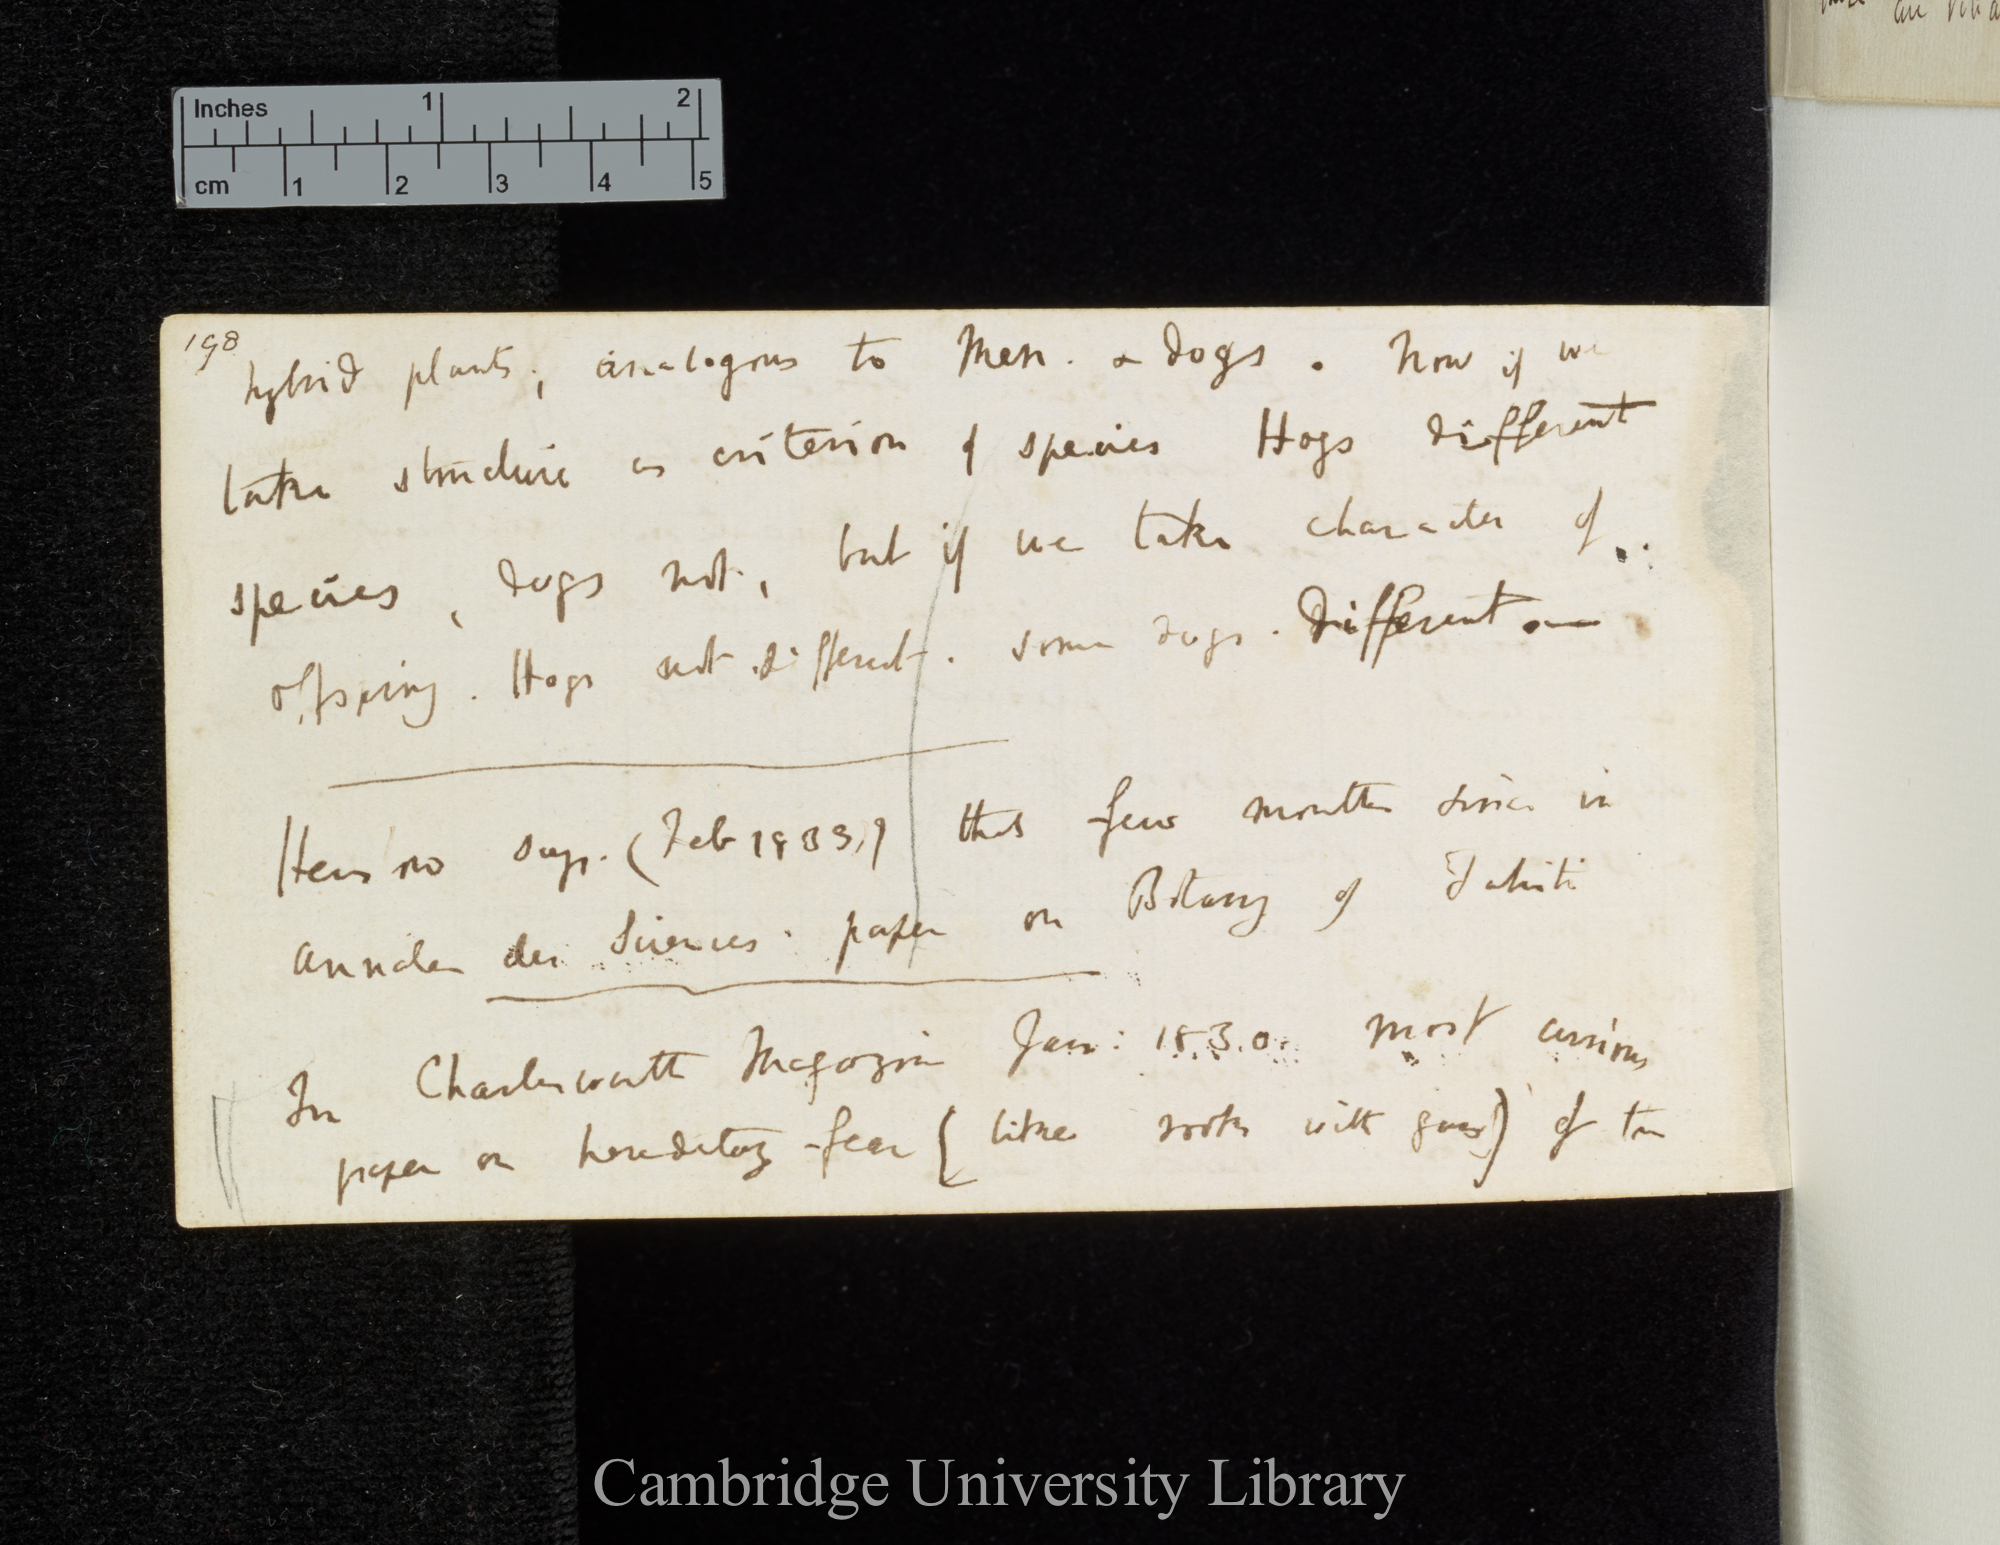 Inches 1 2
cm 1 2 3 4 5
198
hybrid plants, analogous to Men. & dogs. Now if we
take structure as criterion of species Hogs different
species, dogs not, but if we take character of
offspring. Hogs not different. some dogs. different. —
Henslow says. (Feb 1838) that few months since in
Annales des Sciences. paper on Botany of Tahiti
In Charlesworth Magazine Jan: 1838. most curious
paper on hereditary fear (like rooks with guns) of
Cambridge University Library